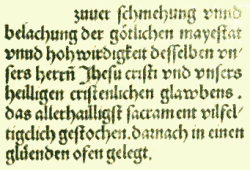 zuuer schmehung vnnd
belachung der götlichen mayestat
vnnd hohwirdigkeit desselben vn-
sers herrn̄ Jhesu cristi vnd vnsers
heilligen cristenlichen glawbens.
das allerhailligst sacrament vilfel-
tigclich gestochen. darnach in einen
glüenden ofen gelegt.